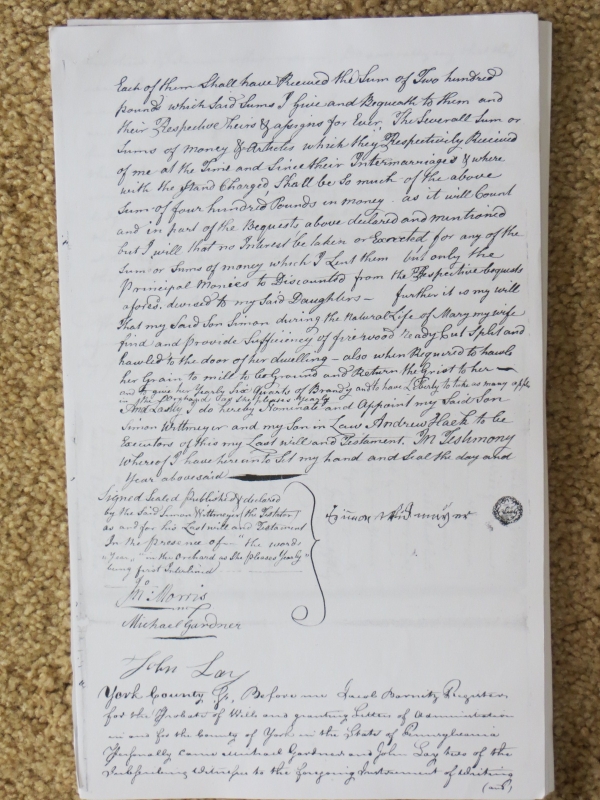 Each of them Shall have Received the Sum of Two hundred
pounds which Said Sums I Give and Bequeath to them and
their Respective Heirs & assigns for Ever, The Severall Sum or
Sums of Money & Articles which they Respectively Received
of me at the Time and Since their Intermarriages & where
with the Stand Charged, Shall be So much of the above
Sum of four hundred Pounds in money as it will Count
and in part of the Bequests above declared and mentioned
but I will that no Interest be taken or Exected for any of the
Sum or Sums of money which I Lent them but only the
Principal Monies to Discounted from the Respective bequests
afores. devised to my Said Daughters — further it is my will
that my Said Son Simon during the Natural Life of Mary my wife
find and Provide Sufficiency of fire wood ready Cut Split and
hawled to the door of her dwelling — also when Required to hawle
her Grain to mill to be Ground and Return the Grist to her —
and to give her Yearly Six Quarts of Brandy and to have Liberty to take as many apples
in the Orchard as She pleases Yearly
And Lastly I do hereby Nominate and Appoint my Said Son
Simon Wittmeyer and my Son in Law Andrew Hack to be
Executors of this my Last will and Testament, In Testimony
Whereof I have hereunto Set my hand and Seal the day and
Year abovesaid
Signed Sealed Published & declared
by the Said Simon Wittmeyer (the Testator)
as and for his Last will and Testament
In the presence of — "the word
"Year," "in the Orchard as She pleases Yearly"
being first Interlined
Simon
Jn: Morris
Michael Gardner
John Lay
York County Ss, Before me Jacob Barnitz Register
for the Probate of Wills and granting Letters of Administration
in and for the County of York in the State of Pennsylvania
Personally came Michael Gardner and John Lay two of the
Subscribing Witnesses to the foregoing Instrument of Writing